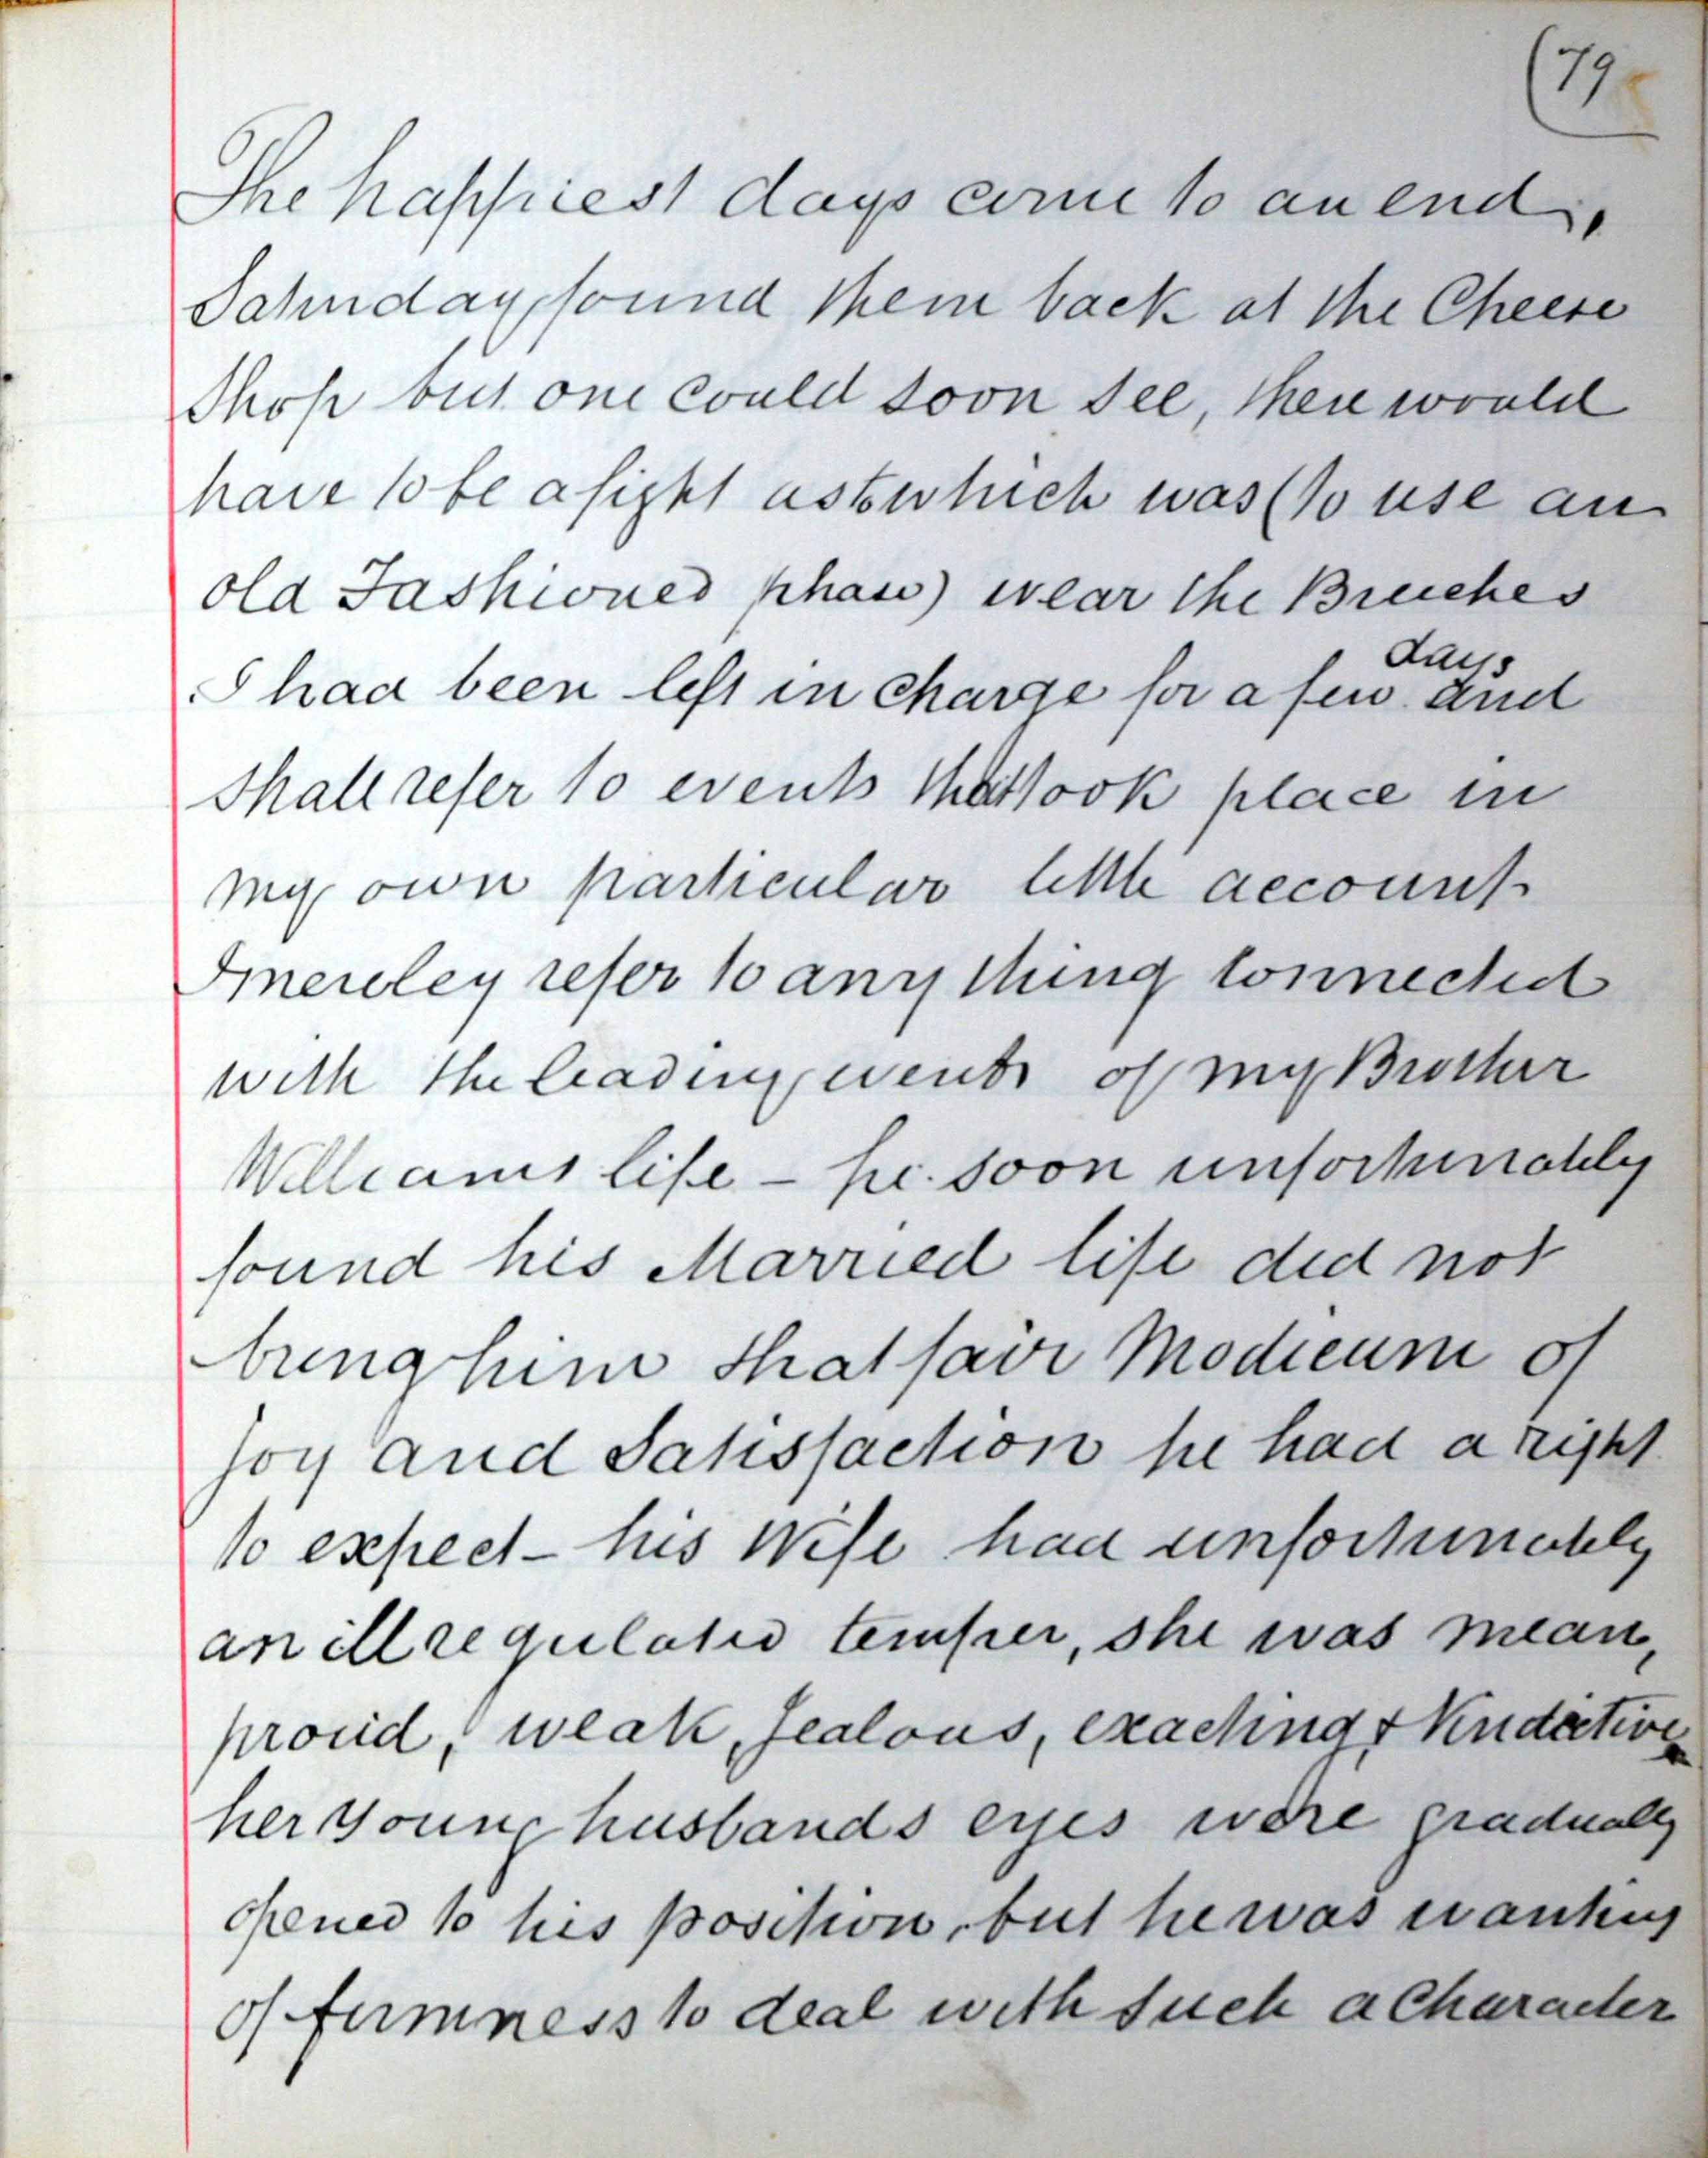 (79
The happiest days come to an end,
Saturday found them back at the Cheese
Shop but one could soon see, there would
have to be a fight as to which was (to use an
old Fashioned phase) wear the Breeches
I had been left in charge for a few days and
shall refer to events that took place in
my own particular little account
I mereley refer to any thing connected
with the leading events of my Brother
Williams life - he soon unfortunately
found his Married life did not
bring him that fair Modicum of
joy and Satisfaction he had a right
to expect - his Wife had unfortunately
an ill regulated temper, she was mean,
proud, weak, Jealous, exacting & Vindictive
her young husbands eyes were gradually
opened to his position, but he was wanting
of firmness to deal with such a Character